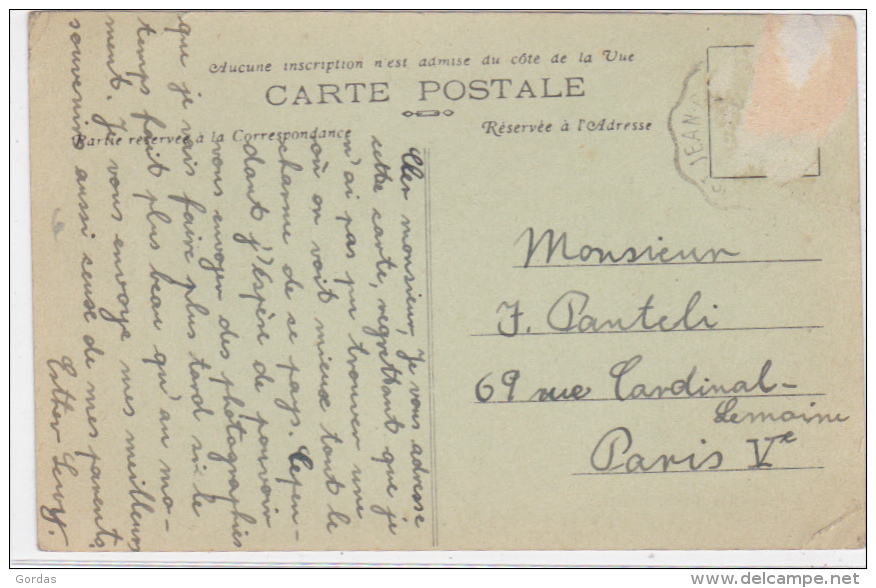 Aucune inscription n'est admise du côté de la Vue
CARTE POSTALE
Partie réservée à la Correspondance
Réservée à l'Adresse
JEAN
Cher monsieur, Je vous adresse
cette carte, regrettant que je
n'ai pas pu trouver une
où on voit mieux tout le
charme de se pays. Cepen-
dant j'éspère de pouvoir
vous envoyer des photographies
que je vais faire plus tard si le
temps fait plus beau qu'au mo-
ment. Je vous envoye mes meilleurs
souvenirs aussi ceuse de mes parents.
Esther Levy.
Monsieur
J. Panteli
69 rue Cardinal-
Lemoine
Paris Ve
Gordas
www.delcampe.net